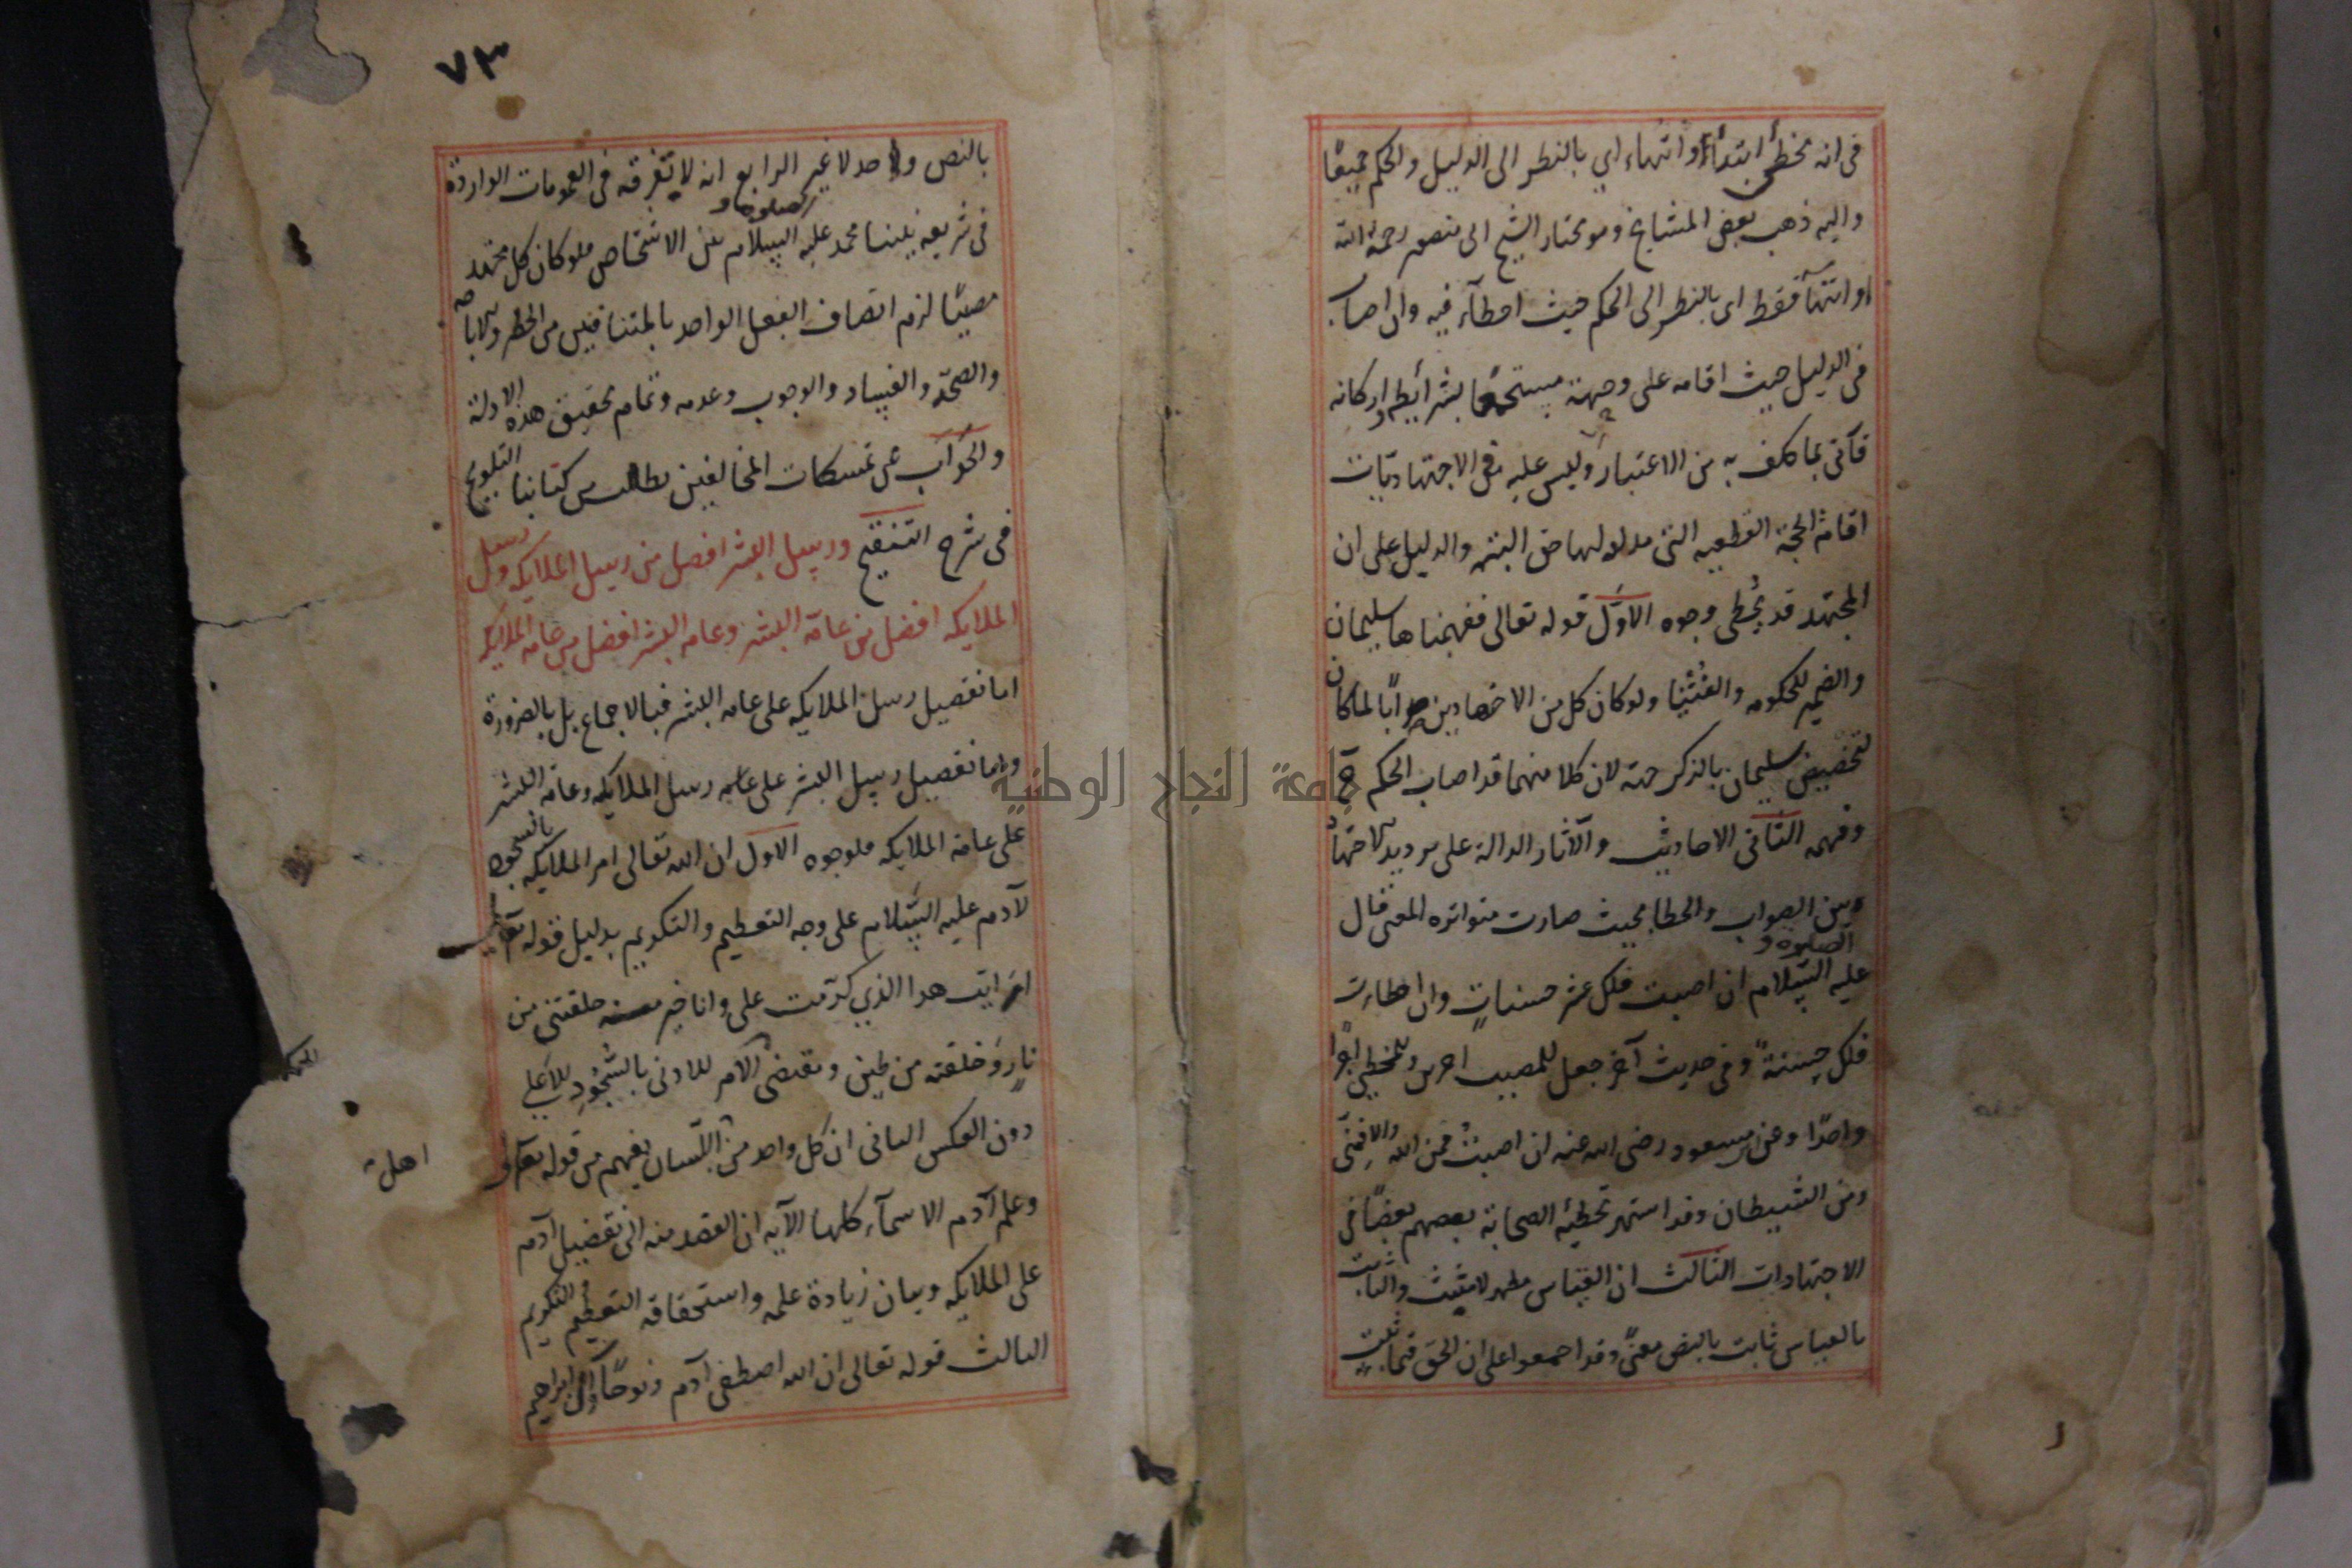 فى انه يخطئ ابتداء وانتهاء اي بالنظر الى الدليل والحكم جميعًا
واليه ذهب بعض المشايخ وهو مختار الشيخ ابى منصور رحمة الله
او انتهآء فقط اى بالنظر الى الحكم حيث اخطآء فيه وان اصاب
فى الدليل حيث اقامه على وجهه مستجمعًا بشرائطه واركانه
فآتى بما كلف به من الاعتبار وليس عليه فى الاجتهاديات
اقامة الحجة القطعيه التى مدلولها حق البته والدليل على ان
المجتهد قد يخطى وجوه الاوّل قوله تعالى ففهمناها سليمان
والضمير للحكومه والفُتْيا ولو كان كل من الاجتهادين صوابًا لما كان
لتخصيص سليمان بالذكر جهة لان كلا منهما قد اصاب الحكم ح
وفهمه الثانى الاحاديث والآثار الدالة على ترديد الاجتهاد
بين الصواب والخطا بحيث صارت متواتره المعنى قال
عليه الصلوه و السّلام ان اصبت فلك عشر حسناتٍ وان اخطاءت
فلك حسنةً وفى حديث آخر جعل للمصيب اجرين وللمخطي اجرًا
واحدًا وعن ابن مسعود رضى الله عنه ان اصبتُ فمن الله والا فمنّى
ومن الشيطان وقد اشتهر تخطئه الصحابة بعضهم بعضًا فى
الاجتهادات الثالث ان القياس مظهر لا مثبت والثابت
بالقياس ثابت بالنص معنًى وقد اجمعوا على ان الحق فيما ثبت
٧٣
بالنص واحد لا غير الرابع انه لا تفرقه فى العمومات الواردة
فى شريعه نبينا محمد عليه الصلوه و السلام بين الاشخاص فلو كان كل مجتهد
مصيبًا لزم اتصاف الفعل الواحد بالمتنافيين من الحظر والاباحه
والصحّه والفساد والوجوب وعدمه وتمام تحقيق هذه الادلة
والجواب عن تمسكات المخالفين يطلب من كتابنا التلويح
فى شرح التنقيح ورسل البشر افضل من رسل الملايكه ورسل
الملايكه افضل من عامّة البشر وعامه البشر افضل من عامه الملايكه
اما تفضيل رسل الملايكه على عامه البشر فبالاجماع بل بالضرورة
واما تفضيل رسل البشر على رسل الملايكه وعامه البشر
على عامة الملايكه فلوجوه الاول ان الله تعالى امر الملايكه بالسجود
لآدم عليه السّلام على وجه التعظيم والتكريم بدليل قوله تعالى
ارايت هذا الذي كرّمت على وانا خير منه خلقتنى من
نارٍ وَخلقته من طين ومقتضى الامر للادنى بالسُّجُودِ للاعلى
دون العكس الثانى ان كل واحد من اهل اللّسان يفهم من قوله تعالى
وعلم آدم الاسمآء كلها الآيه ان القصد منه الى تفضيل آدم
على الملايكه وبيان زيادة علمه واستحقاقه التعظيم والتكريم
الثالث قوله تعالى ان الله اصطفى آدم ونوحًا وآل ابراهيم
جامعة النجاح الوطنية